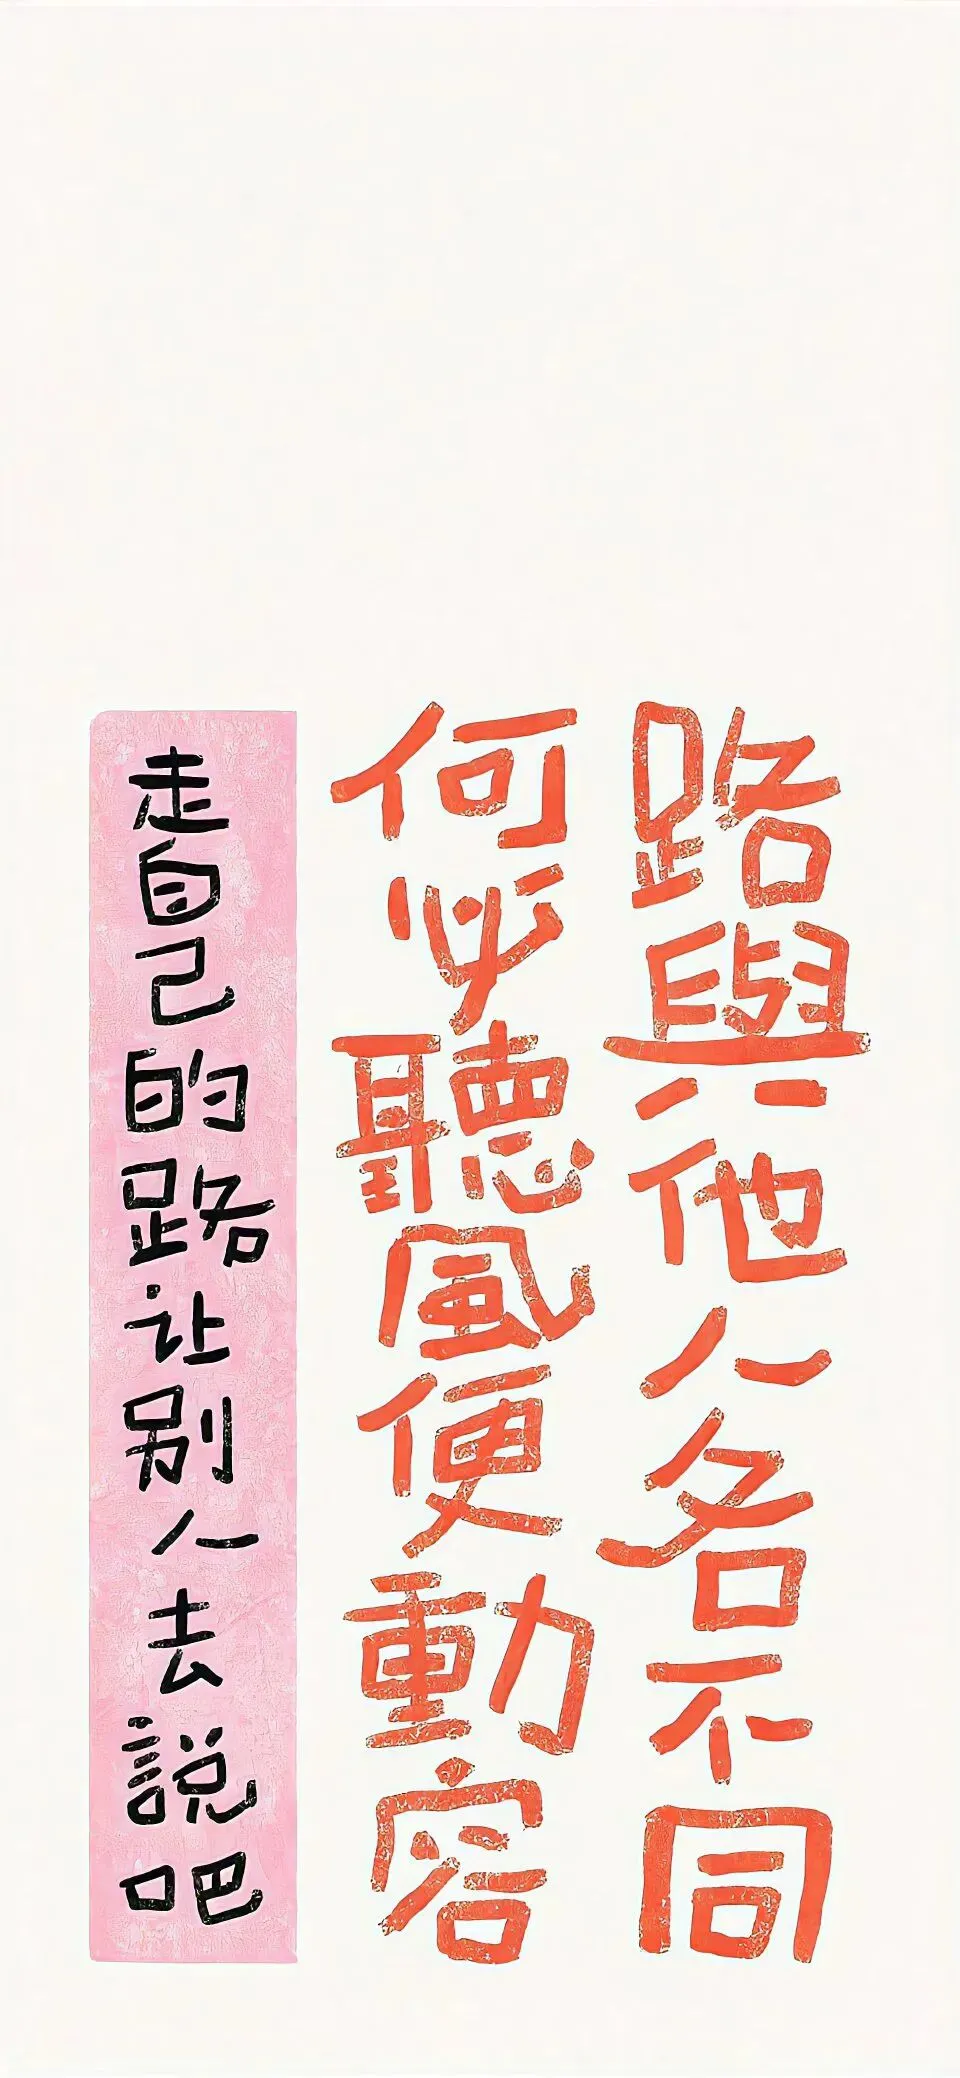 路與他人各不同
何必聽風便動容
走自己的路让别人去說吧